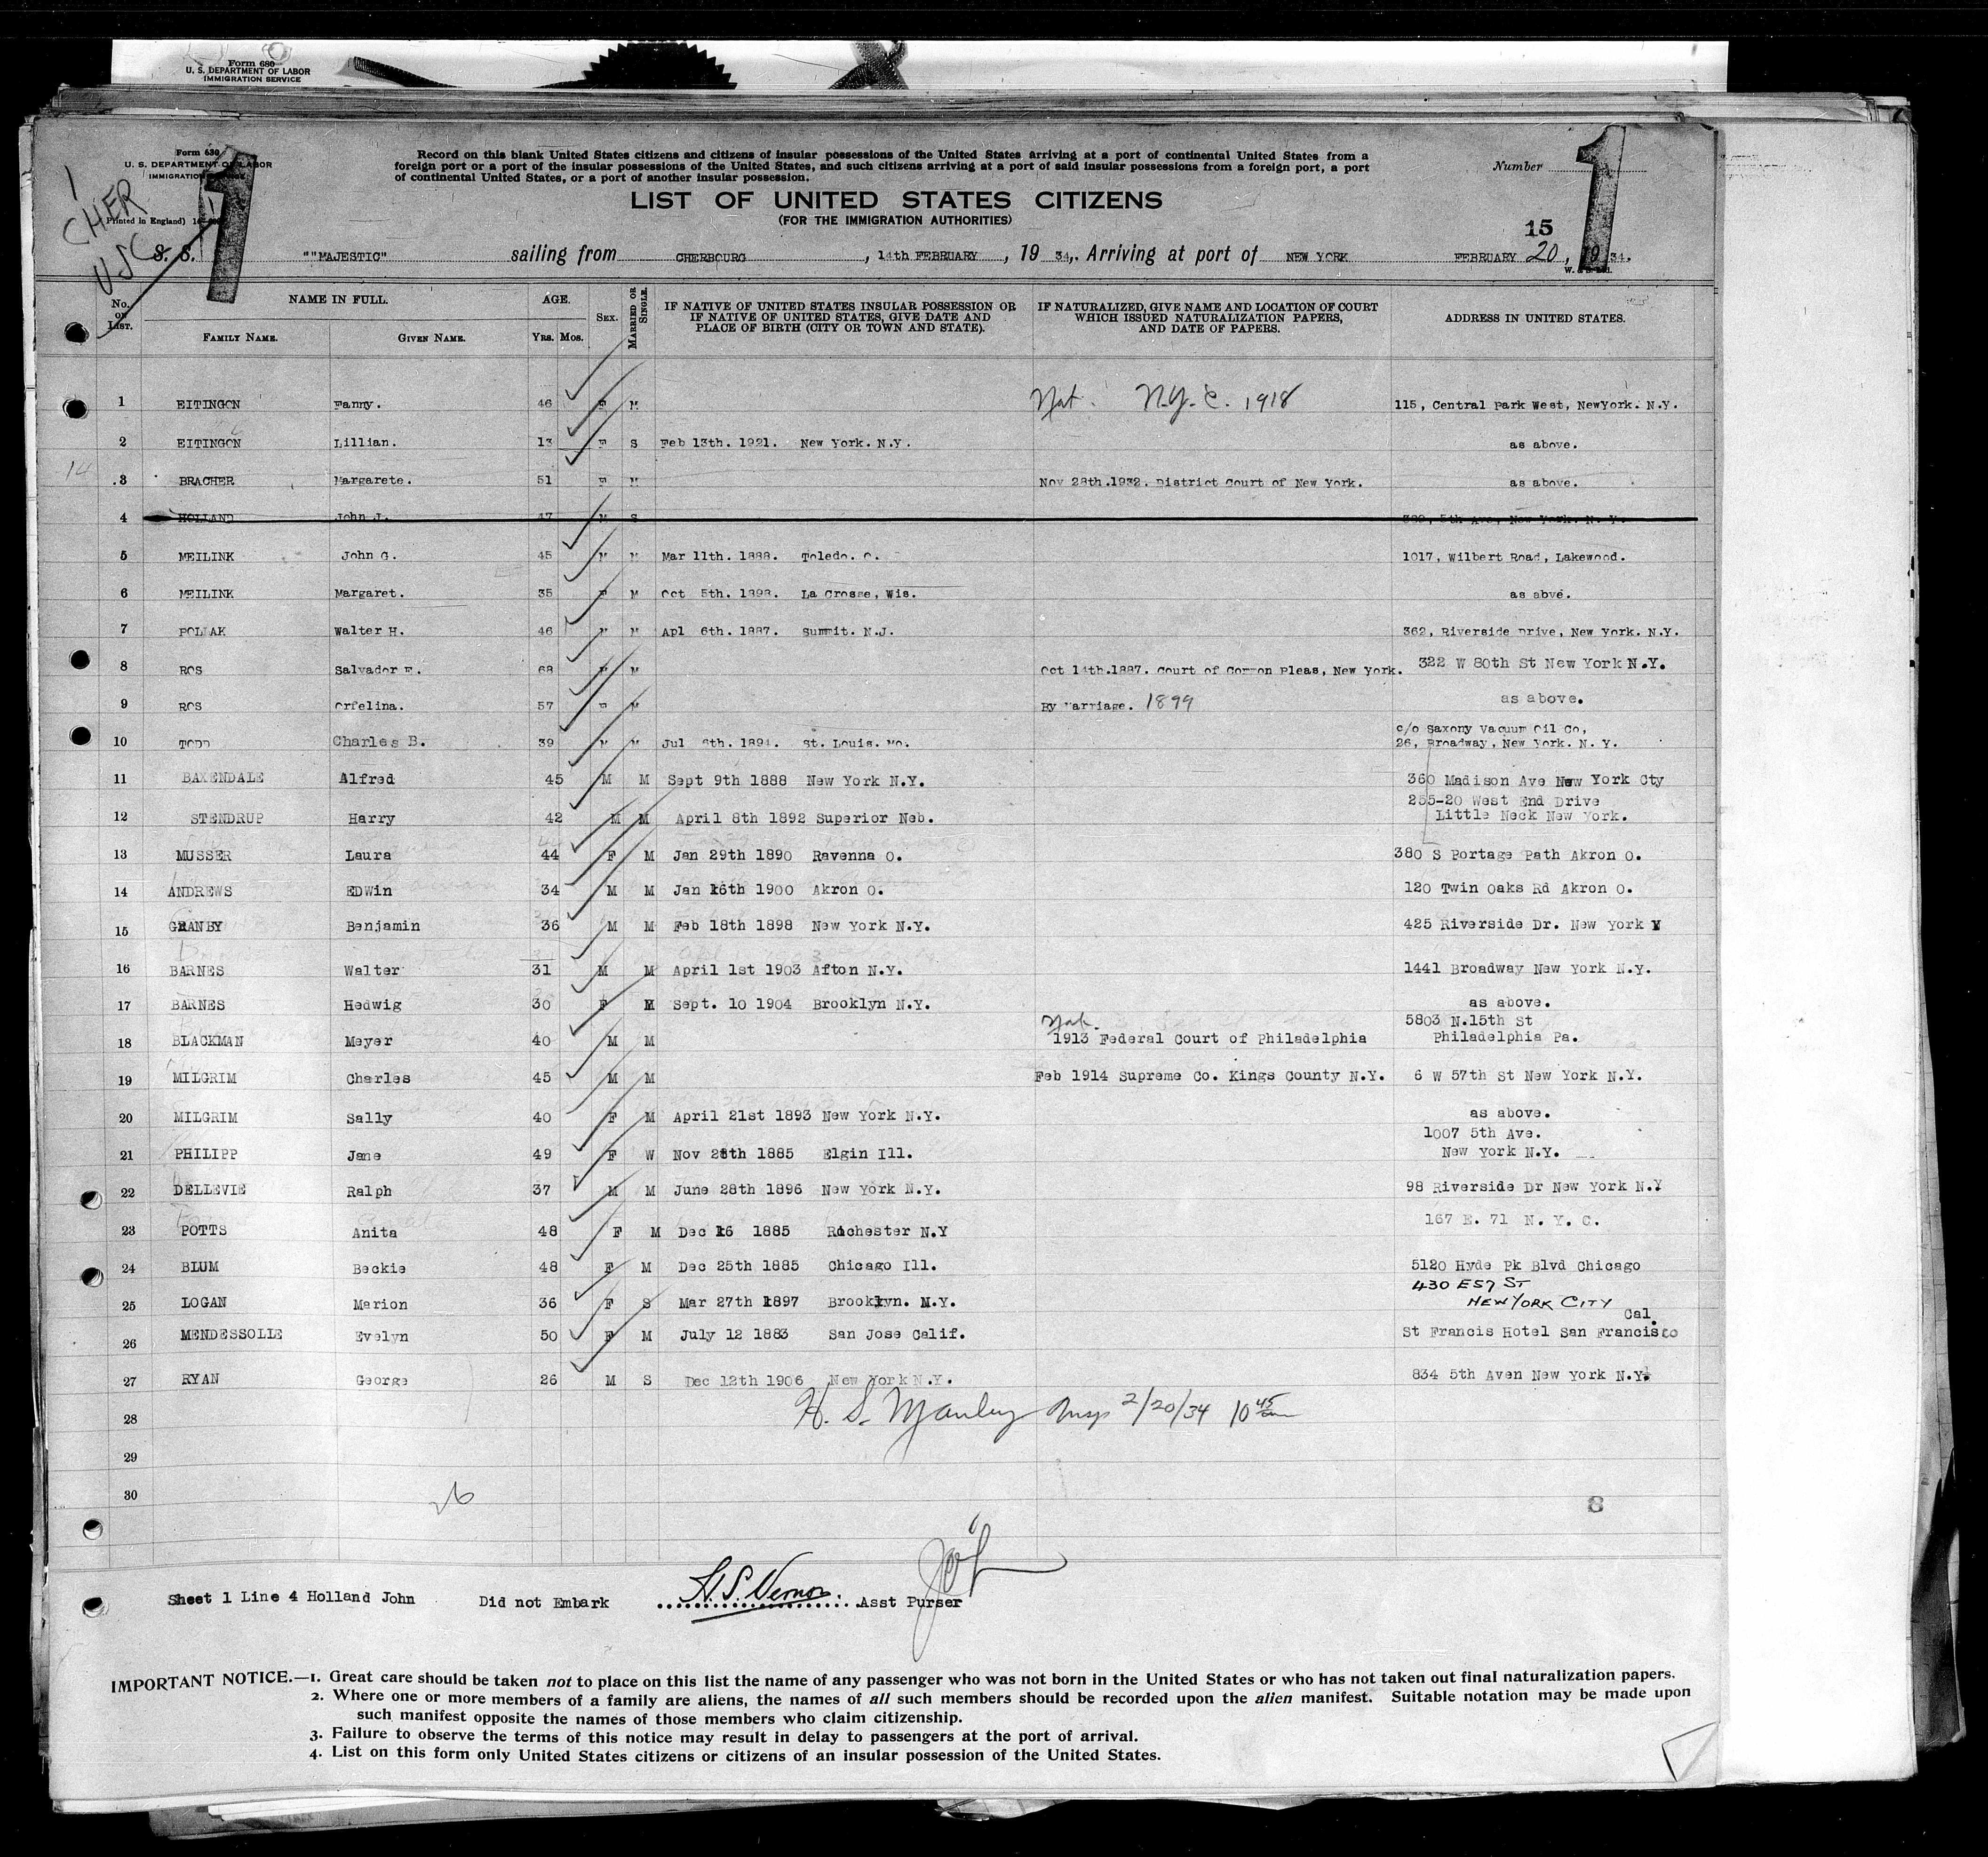 Form 680
U. S. DEPARTMENT OF LABOR
IMMIGRATION SERVICE
Form 630
U. S. DEPARTMENT OF LABOR
IMMIGRATION
1
CHER
USC
Printed in England)
1
Record on this blank United States citizens and citizens of insular possessions of the United States arriving at a port of continental United States from a
foreign port or a port of the insular possessions of the United States, and such citizens arriving at a port of said insular possessions from a foreign port, a port
of continental United States, or a port of another insular possession.
Number
1
LIST OF UNITED STATES CITIZENS
(FOR THE IMMIGRATION AUTHORITIES)
15
S. S. ""MAJESTIC" sailing from CHERBOURG, 14th FEBRUARY, 19 34,. Arriving at port of NEW YORK FEBRUARY 20, 19 34.
No. on List. NAME IN FULL. FAMILY NAME. GIVEN NAME. AGE. Yrs. Mos. SEX. MARRIED OR SINGLE. IF NATIVE OF UNITED STATES INSULAR POSSESSION OR IF NATIVE OF UNITED STATES, GIVE DATE AND PLACE OF BIRTH (CITY OR TOWN AND STATE). IF NATURALIZED, GIVE NAME AND LOCATION OF COURT WHICH ISSUED NATURALIZATION PAPERS, AND DATE OF PAPERS. ADDRESS IN UNITED STATES.
1 EITINGON Fanny. 46 F M Nat. N.Y.C. 1918 115, Central Park West, NewYork. N.Y.
2 EITINGON Lillian. 13 F S Feb 13th. 1921. New York. N.Y. as above.
14
.3 BRACHER Margarete. 51 F M Nov 28th.1932. District Court of New York. as above.
4 HOLLAND John J. 47 M S 5th Ave, New York. N.Y.
5 MEILINK John G. 45 M M Mar 11th. 1888. Toledo. O. 1017, Wilbert Road, Lakewood.
6 MEILINK Margaret. 35 F M Oct 5th. 1898. La Crosse, Wis. as abve.
7 POLLAK Walter H. 46 M M Apl 6th. 1887. Summit. N.J. 362, Riverside Drive, New York. N.Y.
8 ROS Salvador E. 68 M M Oct 14th.1887. Court of Common Pleas, New York. 322 W 80th St New York N.Y.
9 ROS Orfelina. 57 F M By Marriage. 1899 as above.
10 TODD Charles B. 39 M M Jul 6th. 1894. St. Louis. Mo. c/o Saxony Vacuum Oil Co,
26, Broadway, New York. N. Y.
11 BAXENDALE Alfred 45 M M Sept 9th 1888 New York N.Y. 360 Madison Ave New York Cty
12 STENDRUP Harry 42 M M April 8th 1892 Superior Neb. 255-20 West End Drive
Little Neck New York.
13 MUSSER Laura 44 F M Jan 29th 1890 Ravenna O. 380 S Portage Path Akron O.
14 ANDREWS EDWin 34 M M Jan 16th 1900 Akron O. 120 Twin Oaks Rd Akron O.
15 GRANBY Benjamin 36 M M Feb 18th 1898 New York N.Y. 425 Riverside Dr. New York Y
16 BARNES Walter 31 M M April 1st 1903 Afton N.Y. 1441 Broadway New York N.Y.
17 BARNES Hedwig 30 F M Sept. 10 1904 Brooklyn N.Y. as above.
18 BLACKMAN Meyer 40 M M Nat. 1913 Federal Court of Philadelphia 5803 N.15th St
Philadelphia Pa.
19 MILGRIM Charles 45 M M Feb 1914 Supreme Co. Kings County N.Y. 6 W 57th St New York N.Y.
20 MILGRIM Sally 40 F M April 21st 1893 New York N.Y. as above.
21 PHILIPP Jane 49 F W Nov 28th 1885 Elgin Ill. 1007 5th Ave.
New York N.Y.
22 DELLEVIE Ralph 37 M M June 28th 1896 New York N.Y. 98 Riverside Dr New York N.Y
23 POTTS Anita 48 F M Dec 16 1885 Rochester N.Y 167 E. 71 N. Y. C.
24 BLUM Beckie 48 F M Dec 25th 1885 Chicago Ill. 5120 Hyde Pk Blvd Chicago
25 LOGAN Marion 36 F S Mar 27th 1897 Brooklyn. N.Y. 430 E 57 ST
NEW YORK CITY
26 MENDESSOLLE Evelyn 50 F M July 12 1883 San Jose Calif. St Francis Hotel San Francisco Cal.
27 RYAN George 26 M S Dec 12th 1906 New York N.Y. 834 5th Aven New York N.Y.
28 H. S. Manley Insp 2/20/34 10 45 am
29
30
26
8
Sheet 1 Line 4 Holland John Did not Embark H S Vernon. Asst Purser
IMPORTANT NOTICE.—1. Great care should be taken not to place on this list the name of any passenger who was not born in the United States or who has not taken out final naturalization papers.
2. Where one or more members of a family are aliens, the names of all such members should be recorded upon the alien manifest. Suitable notation may be made upon
such manifest opposite the names of those members who claim citizenship.
3. Failure to observe the terms of this notice may result in delay to passengers at the port of arrival.
4. List on this form only United States citizens or citizens of an insular possession of the United States.